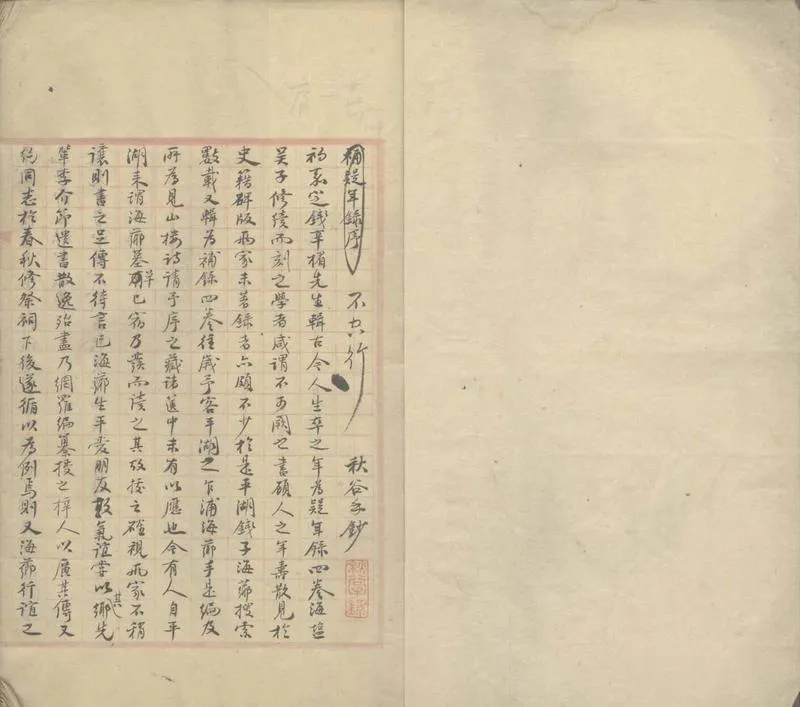 補疑年錄序 不空行 秋谷手鈔
初嘉定錢辛楣先生輯古今人生卒之年為疑年錄四卷海鹽
吳子修續而刻之學者咸謂不可闕之書顧人之年壽散見於
史籍碑版兩家未著錄者亦頗不少於是平湖錢子海薌搜索
數載又輯為補錄四卷往歲予客平湖之乍浦海薌手是編及
所為見山樓詩請予序之藏諸篋中未有以應也今有人自平
湖来謂海薌墓草已宿乃發而讀之其攷挍之確視兩家不稍
讓則書之足傳不待言已海薌生平愛朋友敦氣誼嘗以其鄉先
輩李介節遺書散逸殆盡乃網羅編纂授之梓人以廣其傳又
約同志於春秋修祭祠下後遂循以為例焉則又海薌行誼之